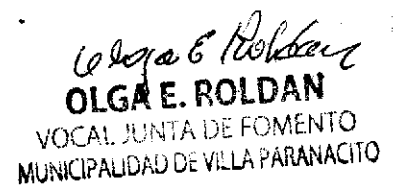 Olga E Roldan
OLGA E. ROLDAN
VOCAL JUNTA DE FOMENTO
MUNICIPALIDAD DE VILLA PARANACITO